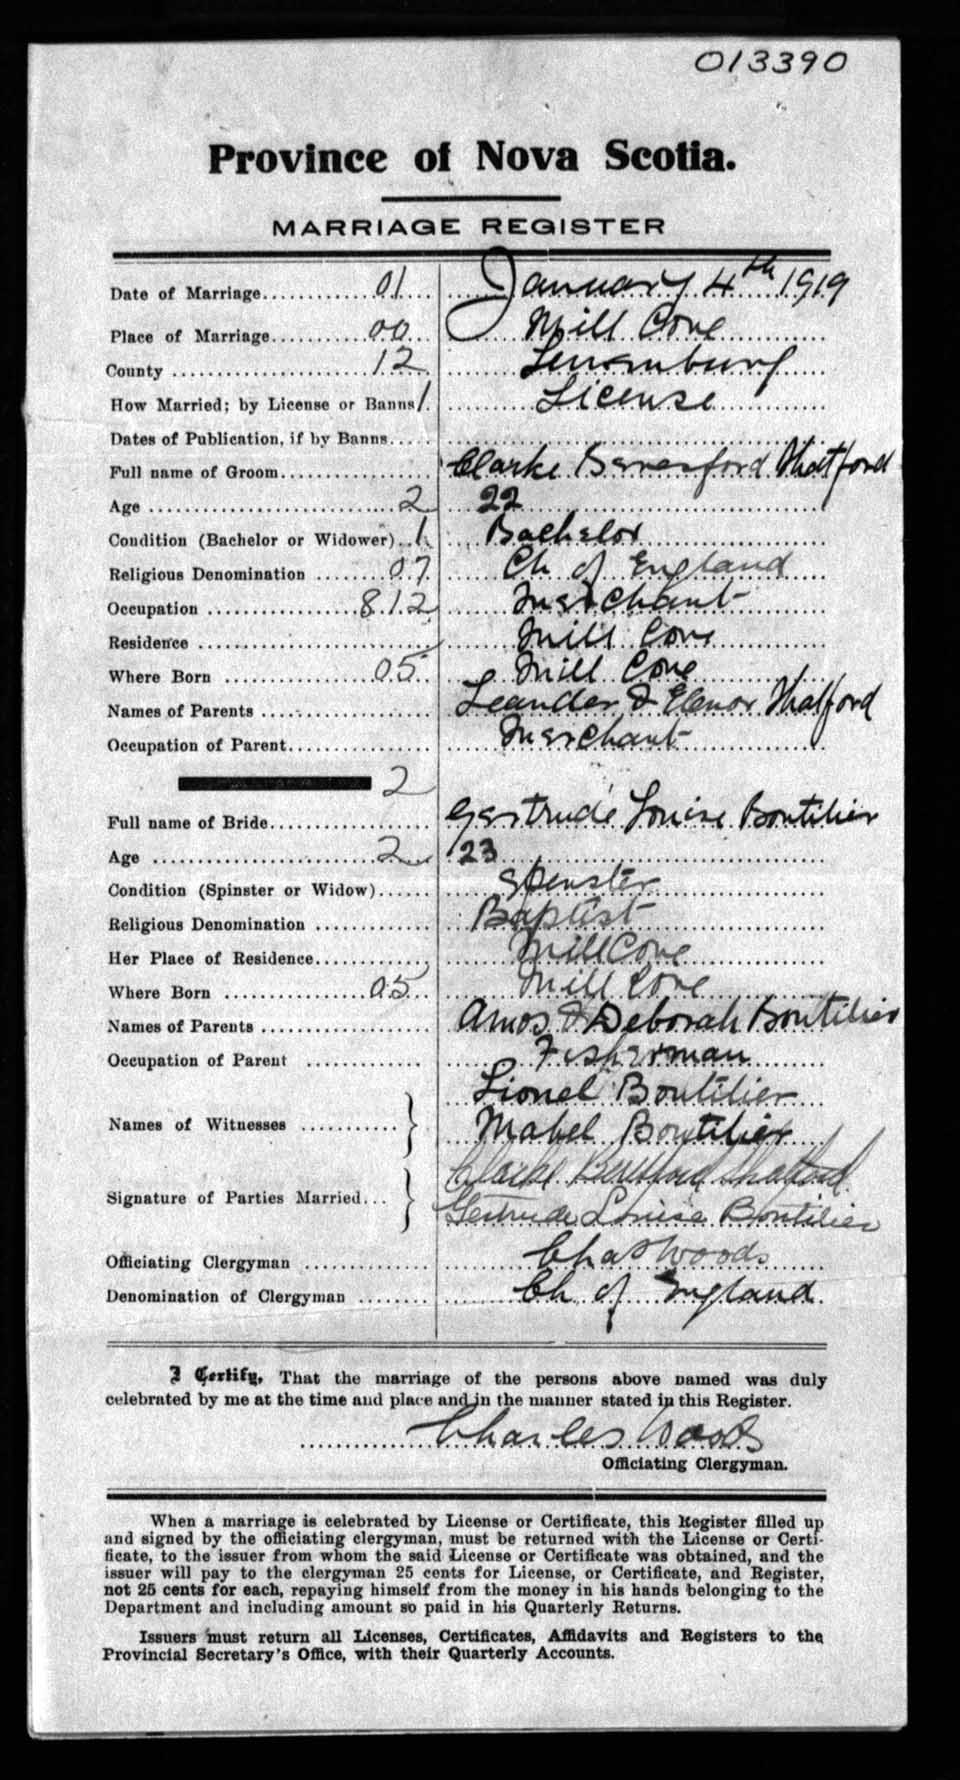 013390
Province of Nova Scotia.
MARRIAGE REGISTER
Date of Marriage............01.... January 4th 1919
Place of Marriage..........00... Mill Cove
County ....................12. Lunenburg
How Married; by License or Banns 1. License
Dates of Publication, if by Banns.....
Full name of Groom............... Clarke Berresford Shatford
Age ........................2 22
Condition (Bachelor or Widower)..1. Bachelor
Religious Denomination .......07. Ch of England
Occupation ................812 Merchant
Residence ........................ Mill Cove
Where Born ................05. Mill Cove
Names of Parents .................. Leander & Elenor Shatford
Occupation of Parent............... Merchant
2
Full name of Bride................. Gertrude Louise Boutilier
Age ......................2... 23
Condition (Spinster or Widow)...... Spenster
Religious Denomination ............ Baptist
Her Place of Residence............. Mill Cove
Where Born ................05.. Mill Cove
Names of Parents .................. Amos & Deborah Boutilier
Occupation of Parent ............. Fisherman
Lionel Boutilier
Names of Witnesses ........... Mabel Boutilier
Clarke Beresford Shatford
Signature of Parties Married... Gertrude Louise Boutilier
Officiating Clergyman ............. Chas Woods
Denomination of Clergyman ........ Ch of England
I Certify, That the marriage of the persons above named was duly
celebrated by me at the time and place and in the manner stated in this Register.
Charles Woods
Officiating Clergyman.
When a marriage is celebrated by License or Certificate, this Register filled up
and signed by the officiating clergyman, must be returned with the License or Certi-
ficate, to the issuer from whom the said License or Certificate was obtained, and the
issuer will pay to the clergyman 25 cents for License, or Certificate, and Register,
not 25 cents for each, repaying himself from the money in his hands belonging to the
Department and including amount so paid in his Quarterly Returns.
Issuers must return all Licenses, Certificates, Affidavits and Registers to the
Provincial Secretary's Office, with their Quarterly Accounts.